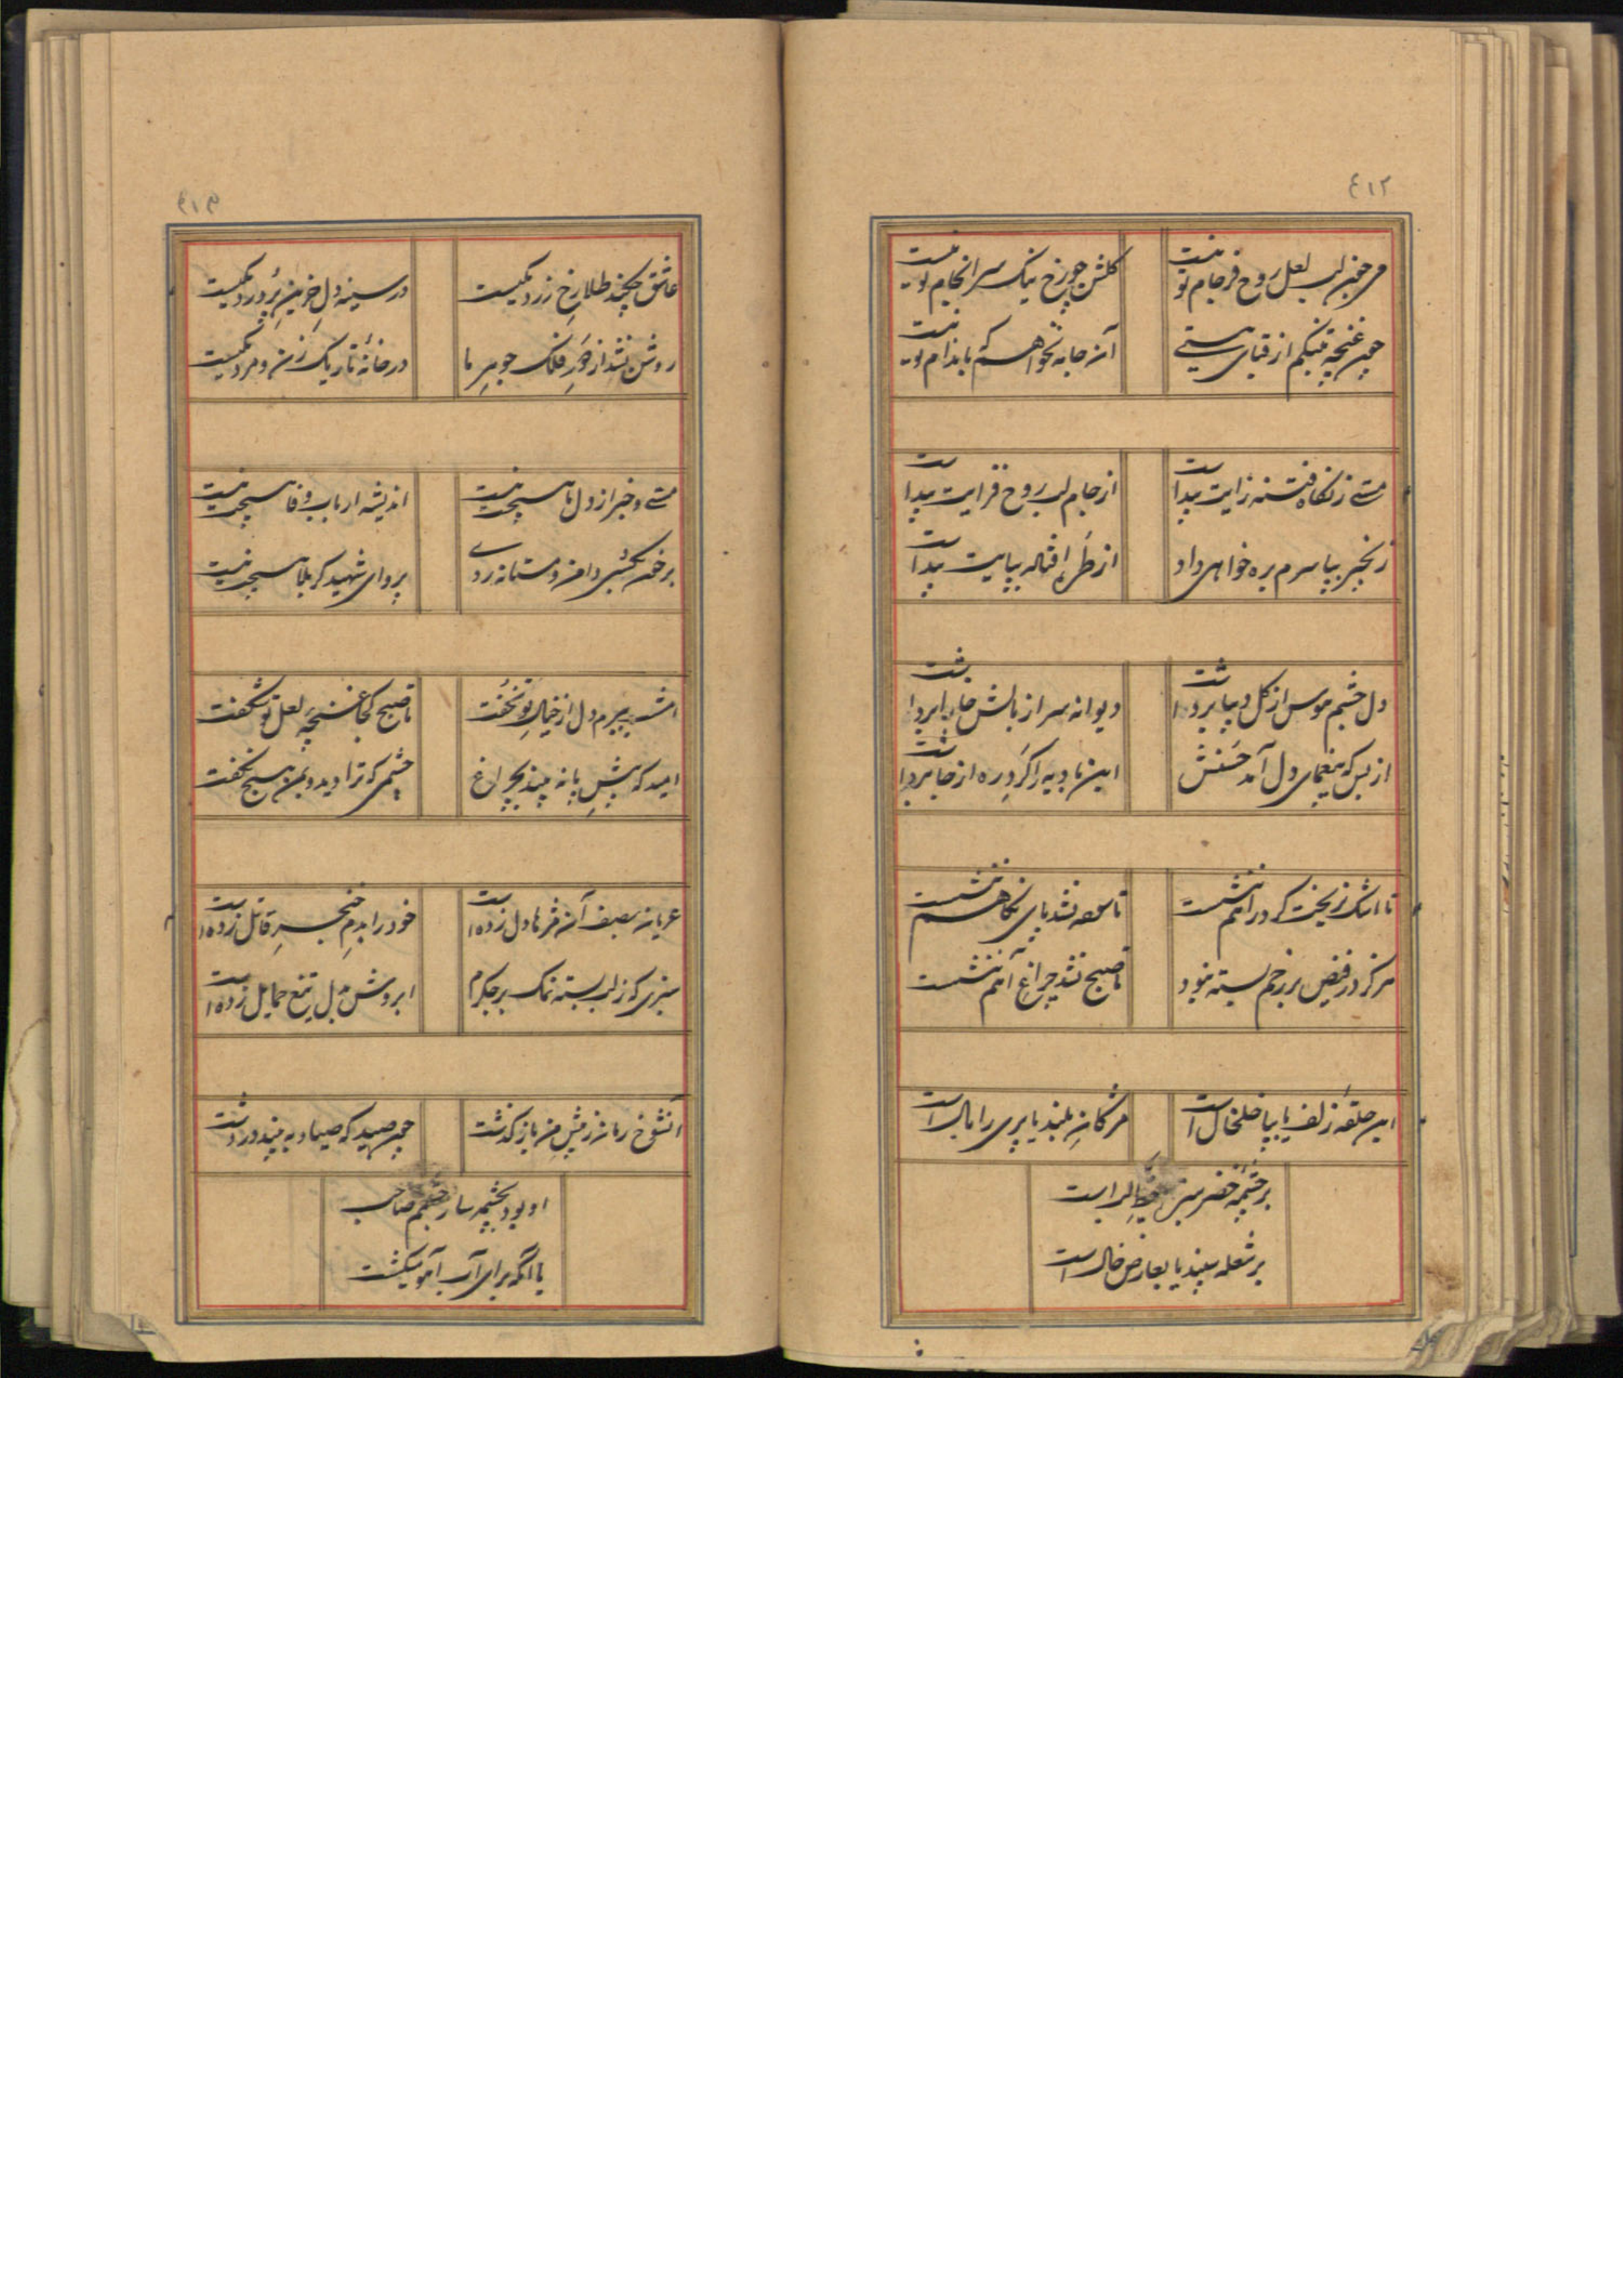 ٤١٢
می چون لب لعل روح فرجام تو نیست
گلشن چو رخ نیک سرانجام تو نیست
چون غنچه بتنگم از قبای هستی
آن جامه نخواهم که باندام تو نیست
مستی ز نگاه فتنه زایت پیداست
از جام لب روح فزایت پیداست
زنجیر بپا سرم بره خواهی داد
از طره افتاده بپایت پیداست
دل خشم هوس از گل و دیبا برداشت
دیوانه سر از بالش برداشت
از بس که بیغمای دل آمد حسنش
این بادیه را گرد ره از جا برداشت
تا اشک نریخت گرد راهم ننشست
تا نشد پای نگاهم ننشست
هرگز در فیض بر رخم بسته نبود
تا صبح نشد چراغ آهم ننشست
این حلقه زلف یا بپا خلخال است
مژگان بلند یا پری را بال است
بر چشمه خضر سبزه یا لب است
بر شعله سپند یا بعارض خال است
٤١٣
عاشق بچند طلا رخ زرد یکیست
در سینه دل حزین پر درد یکیست
روشن نشد از خور فلک جوهر ما
در خانهٔ تاریک زن و مرد یکیست
مستی و خبر از دل ما هیچت نیست
اندیشه ارباب وفا هیچت نیست
بر خون کشی دامن و مستانه روی
پروای شهید کربلا هیچت نیست
امشب پیرم دل از خیال تو نخفت
تا صبح کجا غنچه لعل تو شکفت
امید که پیش پا نه بیند بچراغ
چشمی که ترا دید و بمن هیچ نگفت
عریان بصف آن مژها دل زده است
خود را بدم خنجر قاتل زده است
سبزی که ز لب بسته نمک بر جگرم
ابروش بدل تیغ حمایل زده است
آنشوخ رمان ز پیش من باز گذشت
چون صید که صیاد به بیند در دشت
او بود بچشمه سار چشمم صاحب
یا آنکه برای آب آهو میگشت